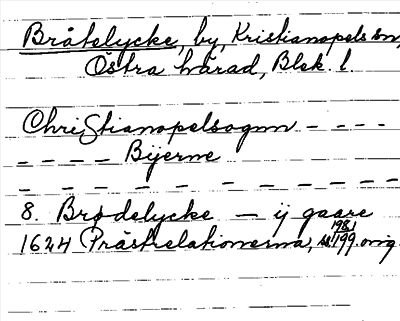 Bråtelycke, by, Kristianopels sn,
Östra härad, Blek. l.
Christianopelsognn - - - -
- - - - Bijerne
- - - - - - - - - - -
8. Brødelycke — ij gaare
198
1624 Prästrelationerna, s. 199 orig.